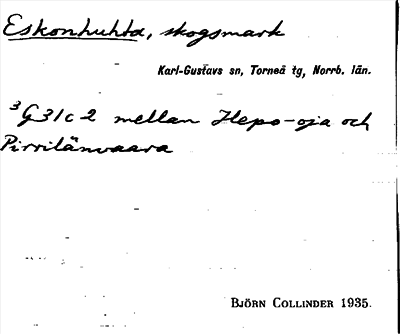 Eskonhuhta, skogsmark
Karl-Gustavs sn, Torneå tg, Norrb. län.
³G31c2 mellan Hepo-oja och
Pirrilänvaara
BJÖRN COLLINDER 1935.